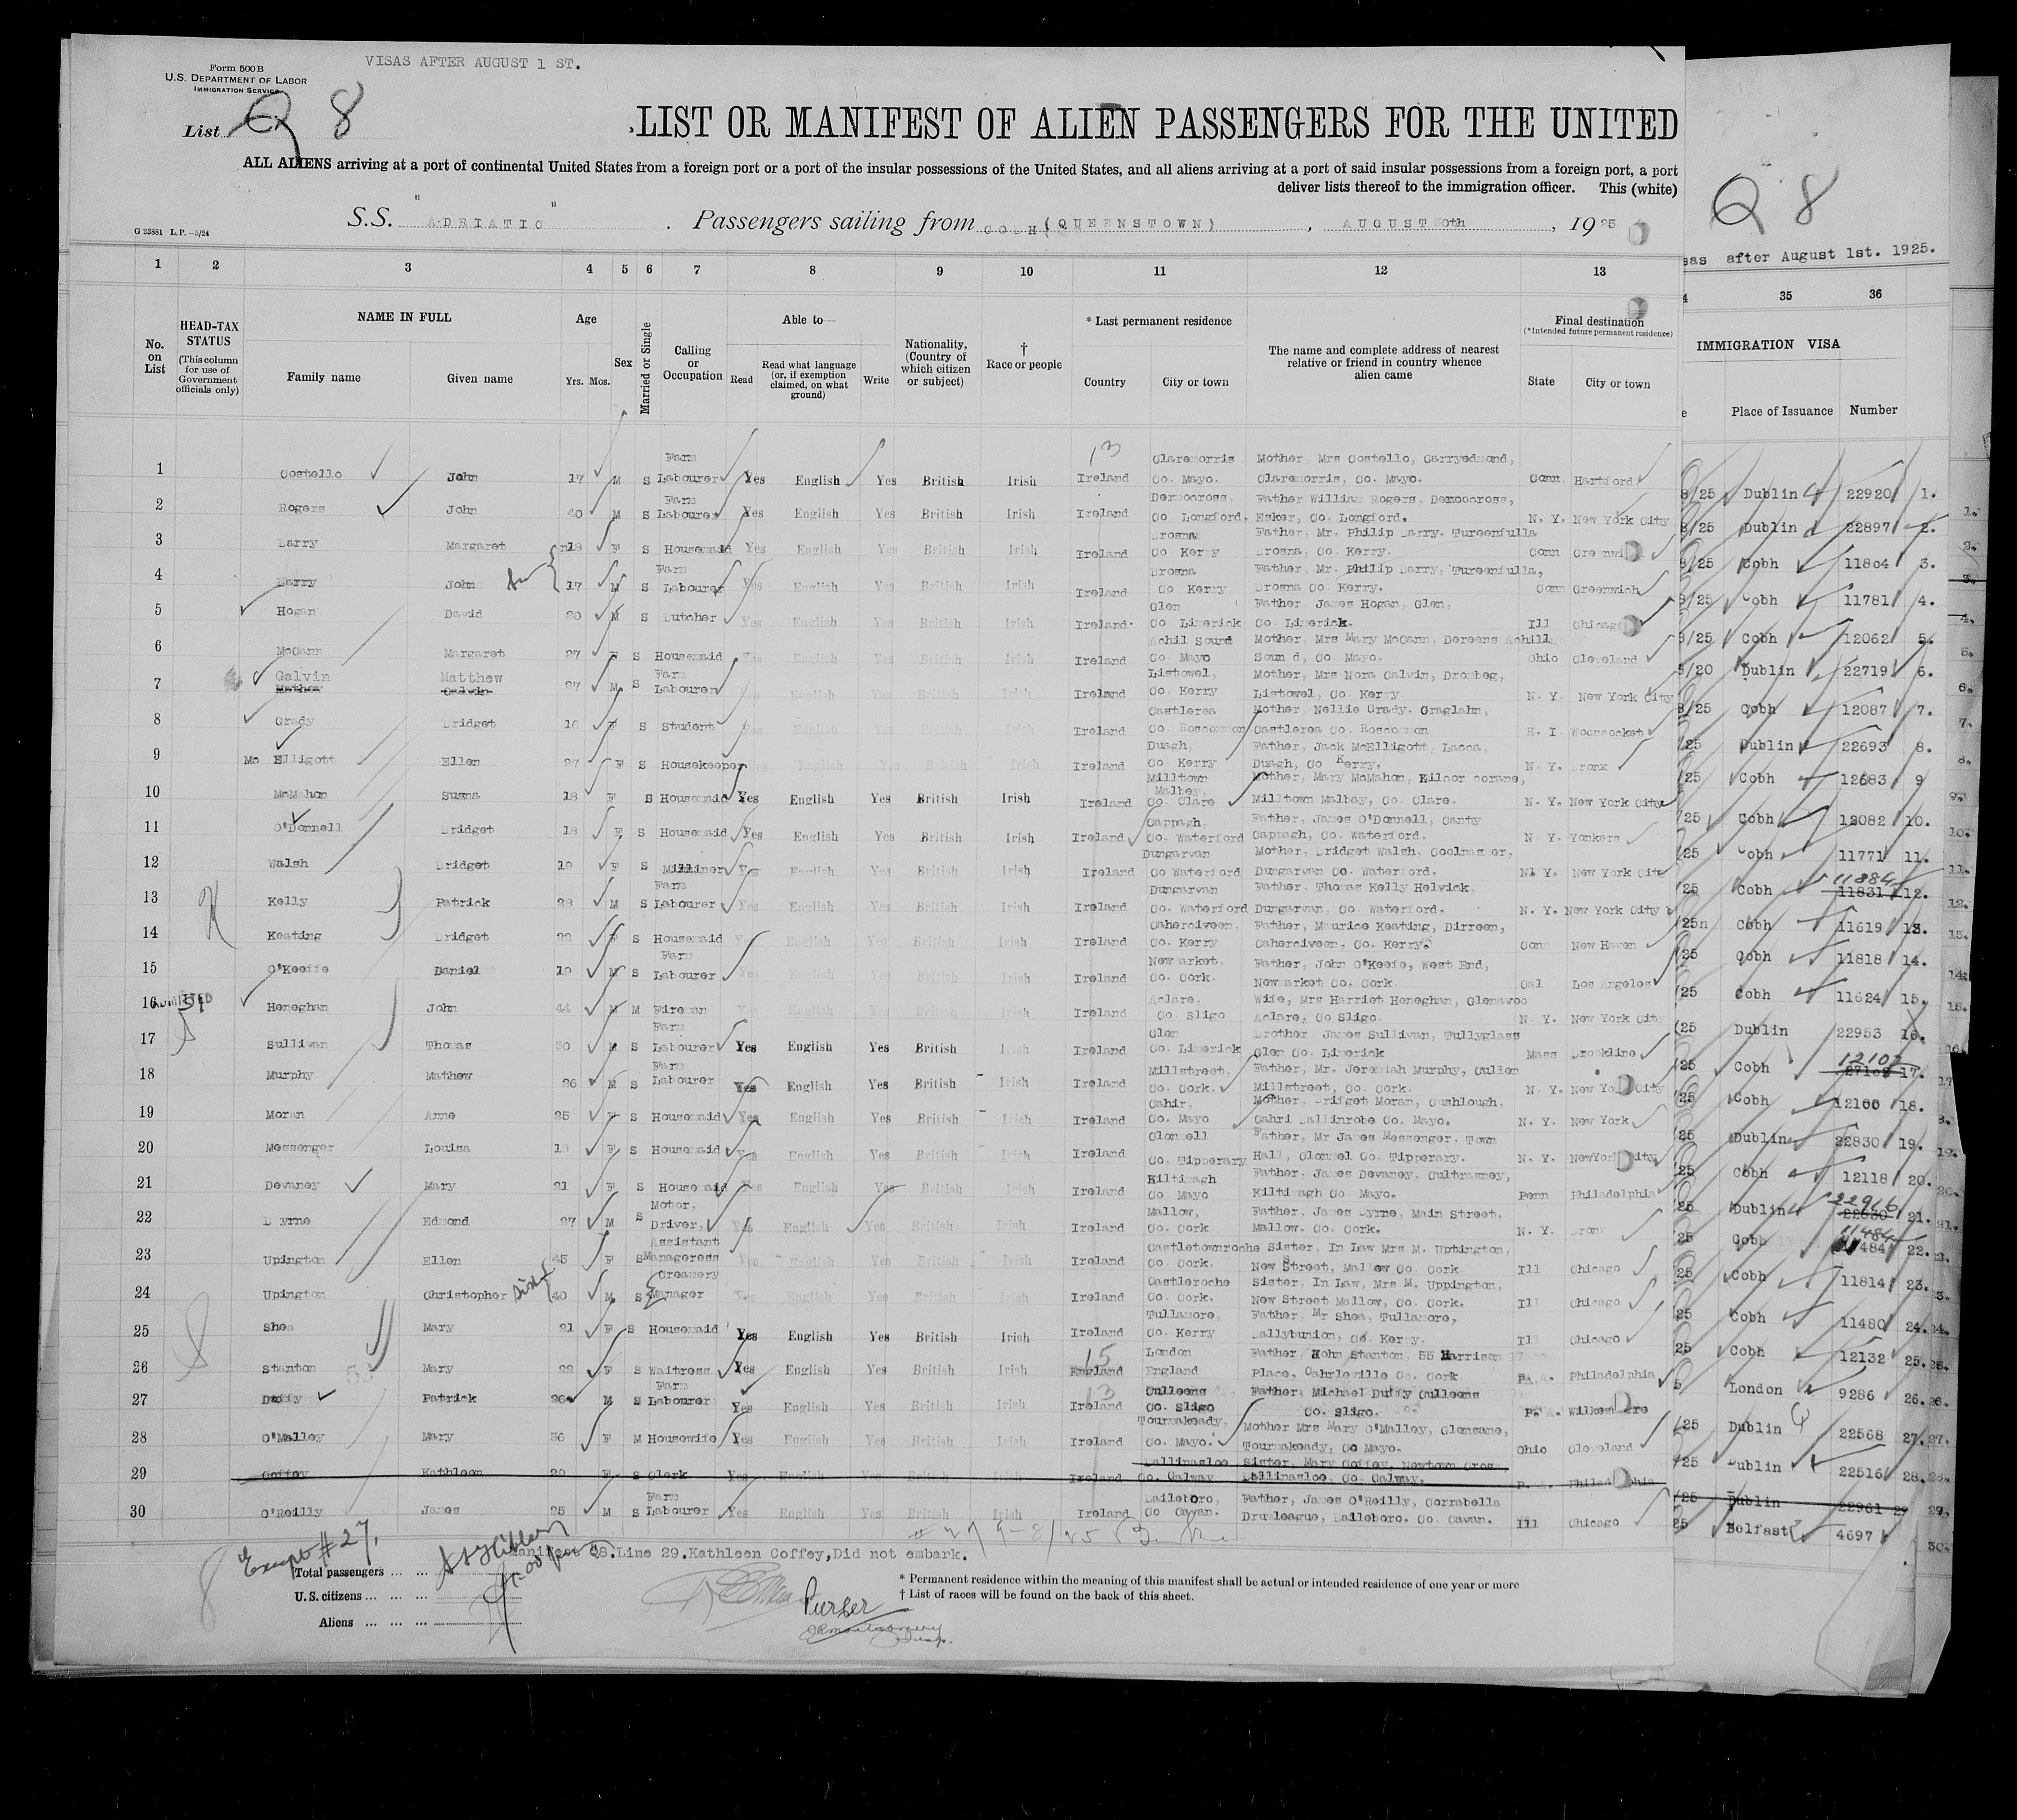 Form 500 B
U.S. DEPARTMENT OF LABOR
IMMIGRATION SERVICE
VISAS AFTER AUGUST 1 ST.
List Q 8
LIST OR MANIFEST OF ALIEN PASSENGERS FOR THE UNITED
ALL ALIENS arriving at a port of continental United States from a foreign port or a port of the insular possessions of the United States, and all aliens arriving at a port of said insular possessions from a foreign port, a port
deliver lists thereof to the immigration officer. This (white)
G 23881 L.P.—5/24
S.S. "ADRIATIC". Passengers sailing from COBH (QUEENSTOWN), AUGUST 30th, 1925
Q 8
after August 1st. 1925.
1 2 3 4 5 6 7 8 9 10 11 12 13 35 36
No. on List
HEAD-TAX STATUS
(This column for use of Government officials only)
NAME IN FULL
Family name Given name
Age
Yrs. Mos.
Sex
Married or Single
Calling or Occupation
Able to—
Read Read what language (or, if exemption claimed, on what ground) Write
Nationality, (Country of which citizen or subject)
† Race or people
* Last permanent residence
Country City or town
The name and complete address of nearest relative or friend in country whence alien came
Final destination
(*Intended future permanent residence)
State City or town
IMMIGRATION VISA
Place of Issuance Number
1 Costello John 17 M S Farm Labourer Yes English Yes British Irish Ireland Claremorris Co. Mayo. Mother, Mrs Costello, Carryedmond, Claremorris, Co. Mayo. Conn. Hartford Dublin 22920 1.
2 Rogers John 40 M S Farm Labourer Yes English Yes British Irish Ireland Dernocross, Co Longford. Father William Rogers, Dernocross, Esker, Co. Longford. N. Y. New York City Dublin 22897 2.
3 Barry Margaret 18 F S Housemaid Yes English Yes British Irish Ireland Brosna Co Kerry Father, Mr. Philip Barry. Tureenfulla Brosna, Co. Kerry. Conn Greenwi Cobh 11804 3.
4 Barry John 17 M S Farm Labourer Yes English Yes British Irish Ireland Brosna Co Kerry Father, Mr. Philip Barry, Tureenfulla, Brosna Co. Kerry. Conn Greenwich Cobh 11781 4.
5 Hogan David 20 M S Butcher Yes English Yes British Irish Ireland Glen Co Limerick Father, James Hogan, Glen, Co. Limerick. Ill Chicago Cobh 12062 5.
6 McCann Margaret 27 F S Housemaid Yes English Yes British Irish Ireland Achil Sound Co Mayo Mother, Mrs Mary McCann, Dereens Achill Soun d, Co. Mayo. Ohio Cleveland Dublin 22719 6.
7 Galvin Matthew 27 M S Farm Labourer Yes English Yes British Irish Ireland Listowel, Co. Kerry Mother, Mrs Nora Galvin, Drombeg, Listowel, Co. Kerry N. Y. New York City Cobh 12087 7.
8 Grady Bridget 16 F S Student Yes English Yes British Irish Ireland Castlerea Co. Roscommon Mother, Nellie Grady. Graglahn, Castlerea Co. Roscommon R. I. Woonsocket Dublin 22693 8.
9 Mc Elligott Ellen 27 F S Housekeeper Yes English Yes British Irish Ireland Duagh, Co Kerry Father, Jack McElligott, Lacca, Duagh, Co Kerry. N. Y. Bronx Cobh 12083 9
10 McMahon Susna 18 F S Housemaid Yes English Yes British Irish Ireland Milltown Malbey, Co. Clare Mother, Mary McMahon, Kilcor corane, Milltown Malbay, Co. Clare. N. Y. New York City Cobh 12082 10.
11 O'Donnell Bridget 18 F S Housemaid Yes English Yes British Irish Ireland Cappagh, Co. Waterford Father, James O'Donnell, Canty Cappagh, Co. Waterford. N. Y. Yonkers Cobh 11771 11.
12 Walsh Bridget 19 F S Milliner Yes English Yes British Irish Ireland Dungarvan Co Waterford Mother, Bridget Walsh, Coolnasmer, Dungarvan Co. Waterford. N. Y. New York City Cobh 11884 11831 12.
13 Kelly Patrick 28 M S Farm Labourer Yes English Yes British Irish Ireland Dungarvan Co. Waterford Father. Thomas Kelly Helvick, Dungarvan, Co. Waterford. N. Y. New York City Cobh 11619 13.
14 Keating Bridget 22 F S Housemaid Yes English Yes British Irish Ireland Caherciveen, Co. Kerry Father, Maurice Keating, Dirreen, Caherciveen, Co. Kerry. Conn New Haven Cobh 11818 14.
15 O'Keeffe Daniel 19 M S Farm Labourer Yes English Yes British Irish Ireland Newmarket. Co. Cork. Father, John O'Keefe, West End, Newmarket Co. Cork. Cal Los Angeles Cobh 11624 15.
ADMITTED
16 Heneghan John 44 M M Fireman Yes English Yes British Irish Ireland Aclare, Co Sligo Wife, Mrs Harriet Heneghan, Glenavoo Aclare, Co Sligo. N. Y. New York City Dublin 22953 16.
17 Sullivan Thomas 30 M S Farm Labourer Yes English Yes British Irish Ireland Glen Co. Limerick Brother James Sullivan, Tullyglass Glen Co. Limerick Mass Brookline Cobh 12102 17.
18 Murphy Mathew 26 M S Farm Labourer Yes English Yes British Irish Ireland Millstreet, Co. Cork. Father, Mr. Jeremiah Murphy, Cullen Millstreet, Co. Cork. N. Y. New Yo City Cobh 12100 18.
19 Moran Anne 25 F S Housemaid Yes English Yes British Irish Ireland Cahir, Co. Mayo Mother, Bridget Moran, Cushlough, Cahri Ballinrobe Co. Mayo. N. Y. New York Dublin 22830 19.
20 Messenger Louisa 18 F S Housemaid Yes English Yes British Irish Ireland Clonmell Co. Tipperary Father, Mr James Messenger, Town Hall, Clonmel Co. Tipperary. N. Y. NewYork City Cobh 12118 20.
21 Devaney Mary 21 F S Housemaid Yes English Yes British Irish Ireland Kiltimagh Co. Mayo Father, James Devaney, Cultrasney, Kiltimagh Co. Mayo. Penn Philadelphia Dublin 22916 21.
22 Byrne Edmond 27 M S Motor, Driver, Yes English Yes British Irish Ireland Mallow, Co. Cork Father, James Byrne, Main Street, Mallow. Co. Cork. N. Y. Bronx Cobh 11484 22.
23 Upington Ellen 45 F S Assistant Manageress Yes English Yes British Irish Ireland Castletownroche Co. Cork. Sister, In Law Mrs M. Uptington, New Street, Mallow Co. Cork Ill Chicago Cobh 11814 23.
24 Upington Christopher 40 M S Creamery Manager Yes English Yes British Irish Ireland Castleroche Co. Cork. Sister, In Law, Mrs M. Uppington, New Street Mallow, Co. Cork. Ill Chicago Cobh 11480 24.
25 Shea Mary 21 F S Housemaid Yes English Yes British Irish Ireland Tullamore, Co. Kerry Father, Mr Shea, Tullamore, Ballybunion, Co. Kerry. Ill Chicago Cobh 12132 25.
26 Stanton Mary 22 F S Waitress Yes English Yes British Irish England London England Father John Stanton, 55 Harrison Place, Cahrleville Co. Cork PA. Philadelphia London 9286 26.
27 Duffy Patrick 20 M S Farm Labourer Yes English Yes British Irish Ireland Culleens Co. Sligo Father, Michael Duffy Culleens Co. Sligo. P. A. Wilkes Dublin 22568 27.
28 O'Malley Mary 36 F M Housewife Yes English Yes British Irish Ireland Tourmakeady, Co. Mayo. Mother Mrs Mary O'Malley, Glensane, Tourmakeady, Co Mayo. Ohio Cleveland Dublin 22516 28.
29 Coffey Kathleen 20 F S Clerk Yes English Yes British Irish Ireland Ballinasloe Co. Galway Sister, Mary Coffey, Newtown Cros Ballinasloe, Co. Galway. P. A. Philadelphia Dublin 22961 29
30 O'Reilly James 25 M S Farm Labourer Yes English Yes British Irish Ireland Baileboro, Co. Cavan. Father, James O'Reilly, Corrabella Drumleague, Balleboro. Co. Cavan. Ill Chicago Belfast 4697
Manifest Q8.Line 29.Kathleen Coffey,Did not embark.
Except #27.
Total passengers
U.S. citizens
Aliens
Purser
* Permanent residence within the meaning of this manifest shall be actual or intended residence of one year or more
† List of races will be found on the back of this sheet.